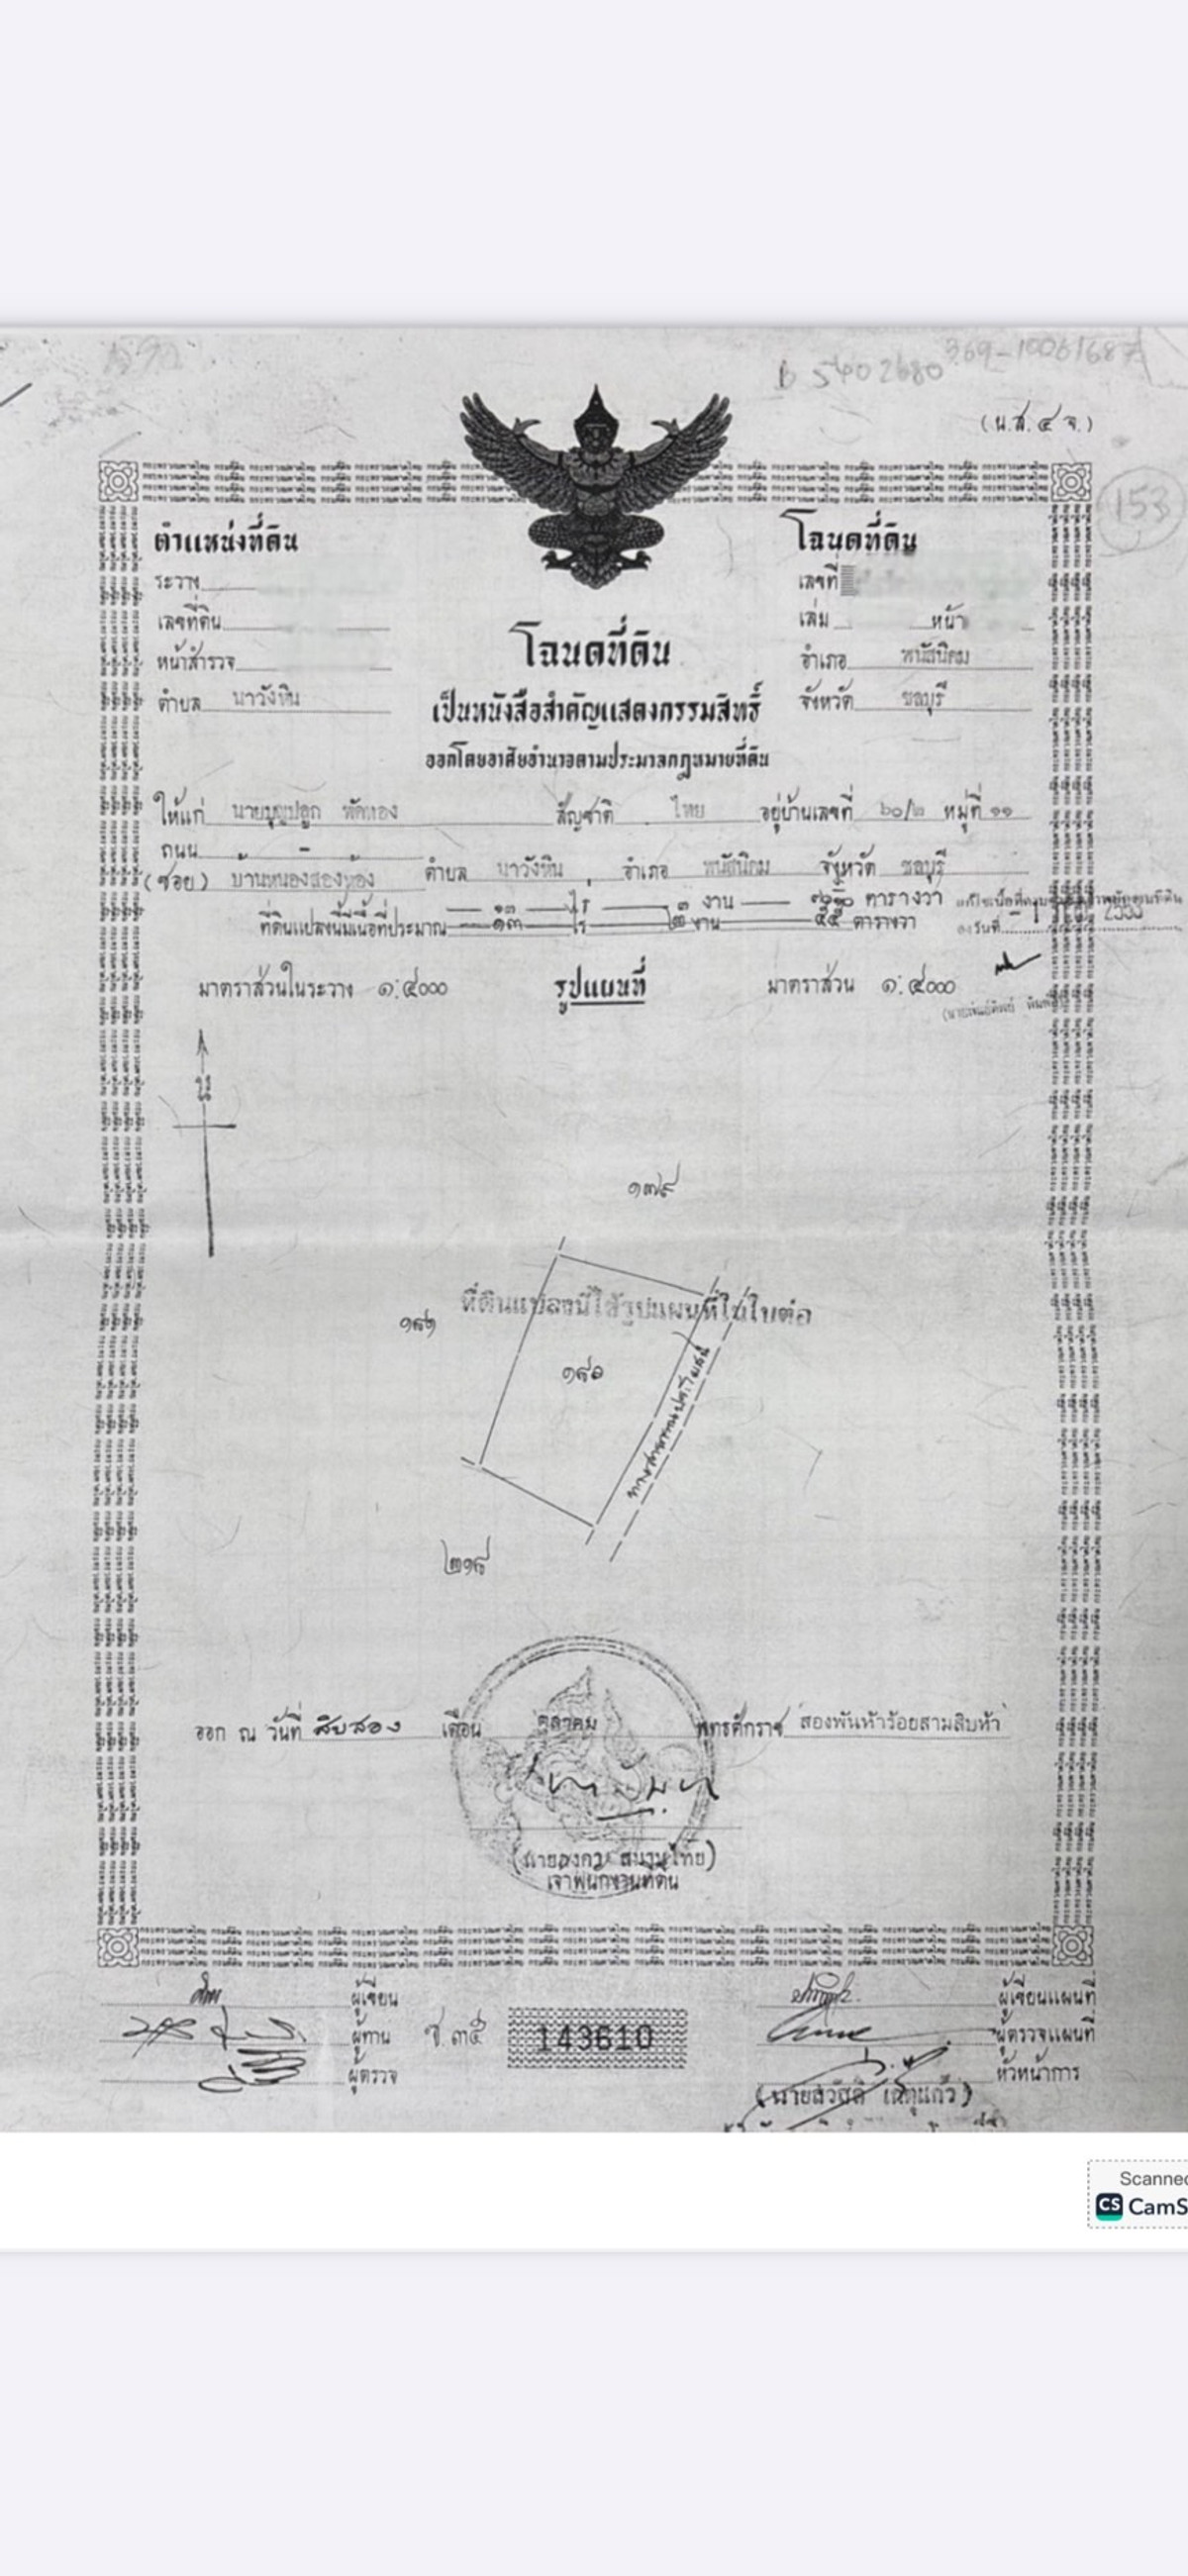 (น.ส.๔ จ.)
153
ตำแหน่งที่ดิน
ระวาง
เลขที่ดิน
หน้าสำรวจ
ตำบล นาวังหิน
โฉนดที่ดิน
เลขที่
เล่ม หน้า
อำเภอ พนัสนิคม
จังหวัด ชลบุรี
โฉนดที่ดิน
เป็นหนังสือสำคัญแสดงกรรมสิทธิ์
ออกโดยอาศัยอำนาจตามประมวลกฎหมายที่ดิน
ให้แก่ นายบุญปลูก พัดทอง สัญชาติ ไทย อยู่บ้านเลขที่ ๖๐/๒ หมู่ที่ ๑๑
ถนน -
(ซอย) บ้านหนองสองห้อง ตำบล นาวังหิน อำเภอ พนัสนิคม จังหวัด ชลบุรี
๑๓ ไร่ ๓ งาน ตารางวา
ที่ดินแปลงนี้มีเนื้อที่ประมาณ ๑๓ ไร่ ๒ งาน ๕๕ ตารางวา
มาตราส่วนในระวาง ๑:๔๐๐๐ รูปแผนที่ มาตราส่วน ๑:๔๐๐๐
๑๗๙
ที่ดินแปลงนี้ใช้รูปแผนที่ในใบต่อ
๑๘๑
๑๘๐
ทางสาธารณประโยชน์
๒๑๘
ออก ณ วันที่ สิบสอง เดือน ตุลาคม พุทธศักราช สองพันห้าร้อยสามสิบห้า
เจ้าพนักงานที่ดิน
ผู้เขียน
ผู้ทาน
ผู้ตรวจ
ช.๓๕
143610
ผู้เขียนแผนที่
ผู้ตรวจแผนที่
หัวหน้าการ
(นายสวัสดิ์ เหตุแก้ว)
Scanned
CS CamS